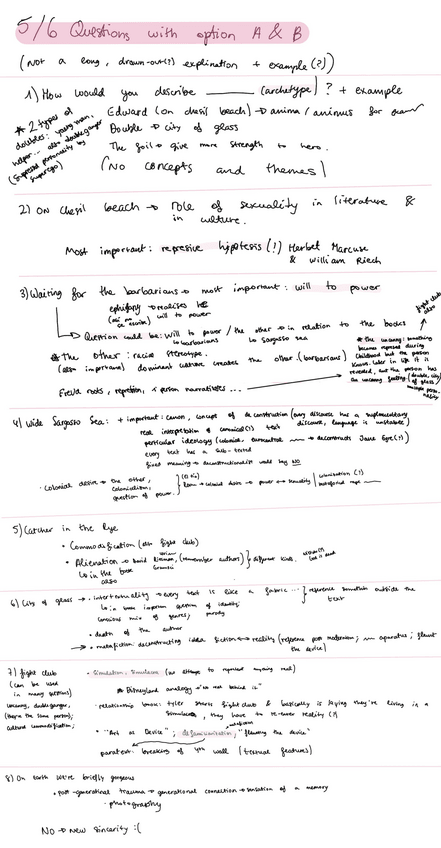 5/6 Questions with option A & B
(Not a long, drawn-out(?) explination + example(?))
1) How would you describe ______ (archetype)? + example
Edward (on chesil beach) → anima/animus for
* 2 types of
doubles: young man,
helper... also doubleganger
(Supressed personality by
superego)
Double → city of glass
The foil → give more strength to hero.
(No concepts and themes)
2) On Chesil beach → role of sexuality in literature &
in culture.
Most important: represive hypotesis(!) Herbet Marcuse
& William Riech
3) Waiting for the barbarians → most important: will to power
ephifany → realises
will to power
Question could be: will to power / the other → in relation to the books
↳ barbarians ↳ Sargasso sea
* the other: racial stereotype.
(also important) dominant culture creates the other (barbarians)
Freud roots, repretion, person narratives...
fight club
also
* the uncanny: something
becomes repressed during
Childhood but the person
knows. Later in life it is
revealed, but the person has
an uncanny feeling (double, city
of glass
4) Wide Sargasso Sea: + important: canon, concept of deconstruction (any discourse has a suplementary
discourse, language is unstable)
real interpretation of canonical(?) text
particular ideology (colonial, → deconstructs Jane Eyre(?))
every text has a sub-texted
fixed meaning → deconstructionalist would say NO
· Colonial desire → the other,
colonialism,
question of power.
colonial desire → power ↔ sexuality
5) Catcher in the Rye
• Commodification (also fight club)
• Alienation → (remember author) } different kinds.
↳ in the base
also
6) City of glass → · intertextuality → every text is like a fabric ... } reference somewhere outside the
text
↳ in book important question of identity;
conscious mix of genres; parody
• death of the author
→ • metafiction: deconstructing idea fiction ↔ reality (reference post modernism; apparatus; flaunt
the device)
7) fight club
(can be used
in many questions)
Uncanny, doubleganger,
(they're the same person);
cultural commodification;
• Simulation, Simulacra (no attempt to represent anything real)
* Disneyland analogy
· relationship book: tyler starts fightclub & basically is saying they're living in a
simulacra, they have to re-enter reality (?)
• "Art as Device"; defamiliarization, "flaunting the device"
paratext: breaking of 4th wall (textual features)
8) On earth we're briefly gorgeous
• post-generational trauma → generational connection → sensation of a memory
· photography
No → new sincerity :(